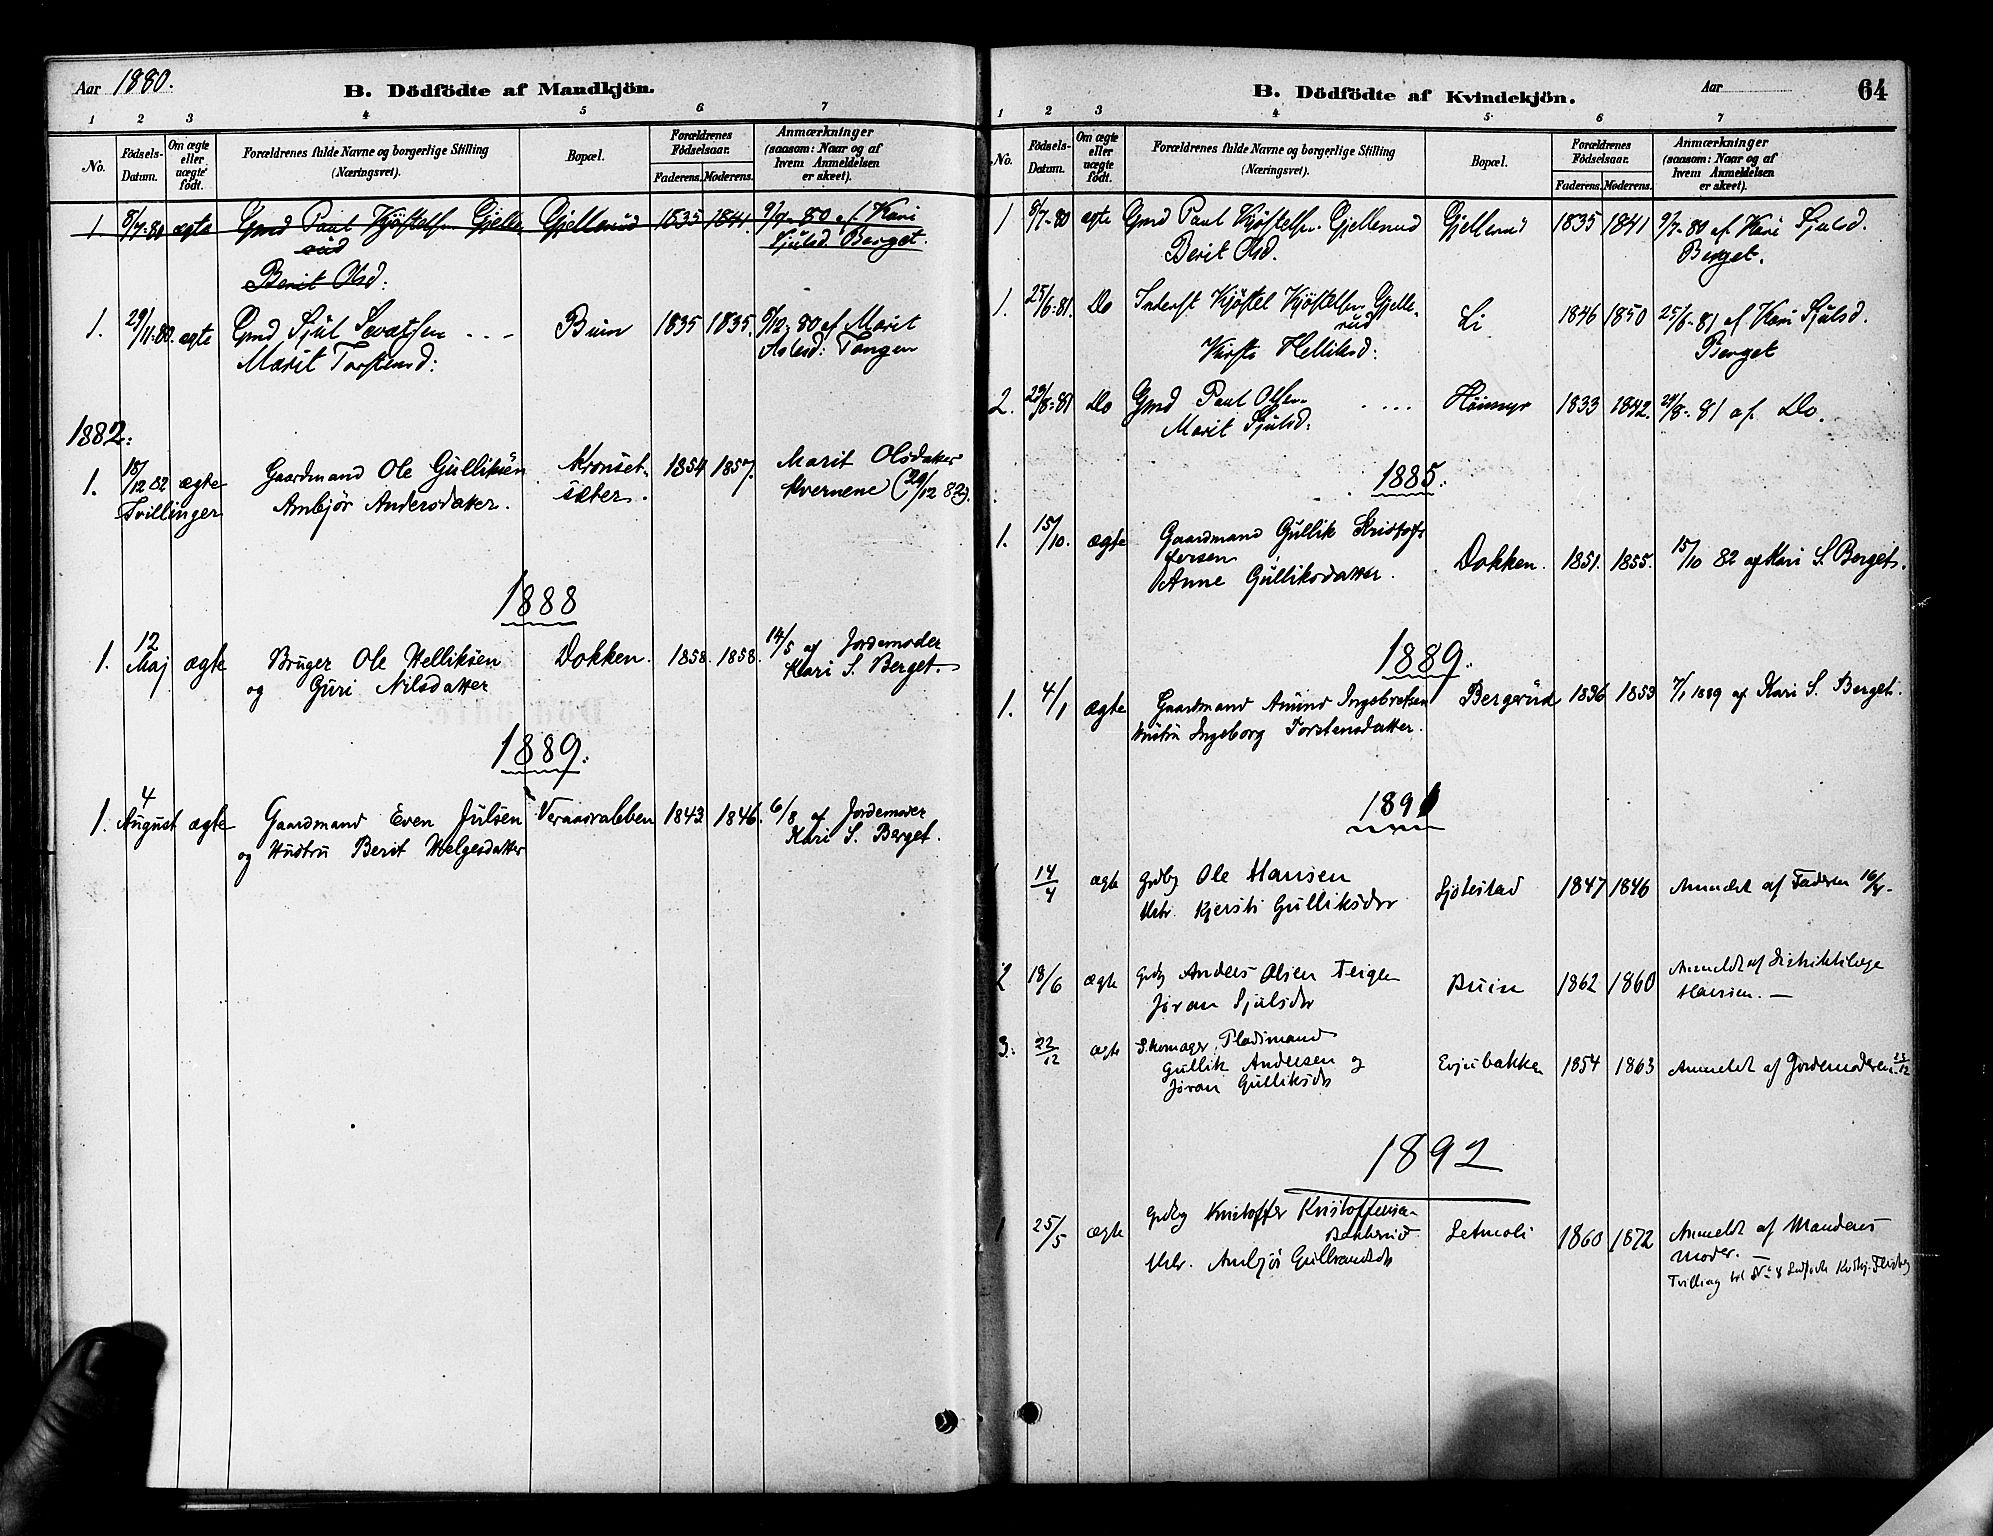 Aar 1880.
B. Dödfödte af Mandkjön.
1 2 3 4 5 6 7
No. Födsels-Datum. Om ægte eller uægte født. Forældrenes fulde Navne og borgerlige Stilling (Næringsvei). Bopæl. Forældrenes Födselsaar. Faderens. Moderens. Anmærkninger (saasom: Naar og af hvem Anmeldelsen er skeet).
1. 8/7-80 ægte Gmd Paul Kjöstelsn. Gjelle- Gjellerud 1835 1841. 9/7-80 af Kari
rud Sjulsd. Berget.
Berit Olsd:
1. 29/11-80. ægte Gmd Sjul Bruin 1835 1835. 80 af Marit
Marit Torstensd: Aslesd: Tangen
1882:
1. 18/12 82 ægte Gaardmand Ole Gulliksen Kronset- 1854 1857. Marit Olsdatter
Tvillinger Ambjör Andersdatter. sæter. Kvernene (29/12 82).
1888
1. 12 Maj ægte Bruger Ole Helliksen Dokken. 1858. 1858. 14/5 af Jordemoder
og Guri Nilsdatter Kari S. Berget.
1889.
1. 4 August ægte Gaardmand Even Julsen Veraasrabben 1843. 1846. 6/8 af Jordemoder
og Hustru Berit Helgesdatter Kari S. Berget.
B. Dödfödte af Kvindekjön.
Aar
64
1 2 3 4 5 6 7
No. Födsels-Datum. Om ægte eller uægte födt. Forældrenes fulde Navne og borgerlige Stilling (Næringsvei). Bopæl. Forældrenes Födselsaar. Faderens. Moderens. Anmærkninger (saasom: Naar og af hvem Anmeldelsen er skeet).
1 8/7-80 ægte Gmd Paul Kjöstelsn. Gjellerud Gjellerud 1835 1841 9/7-80 af Kari Sjulsd.
Berit Olsd. Berget.
1. 25/6-81. Do Inderst Kjöstel Kjöstelsn Gjelle- Li 1846 1850 25/6-81 af Kari Sjulsd.
rud Berget
Kirsti Helliksd:
2. 29/8-81 Do Gmd Paul Olsen Höimyr 1833 1842. 29/8-81 af Do.
Marit Sjulsd:
1885.
1. 15/10. ægte Gaardmand Gullik Kristof-
fersen Dokken. 1851. 1855. 15/10 82 af Kari S. Berget.
Anne Gulliksdatter.
1889.
1. 4/1 ægte Gaardmand Amund Ingebretsen Bergerud 1836 1853 7/1 1889 af Kari S. Berget.
Hustru Ingeborg Torstensdatter.
1891
14/4 ægte Grdbg Ole Hansen Sjölistad 1847 1846 Anmeldt af Faderen 16/4-
Hstr. Kjersti Gulliksdtr
2 18/6 ægte Grdbg Anders Olsen Teigen Bruin 1862 1860 Anmeldt af Distriktslæge
Jøran Sjulsdtr Hansen. —
3. 22/12 ægte Skomager, Pladsmand
Gullik Andersen og Evjubakken 1854 1863 Anmeldt af Jordemoderen 23/12
Jøran Gulliksdtr
1892
1 25/5 ægte Grdbg Kristoffer Kristoffersen Setmoli 1860 1872 Anmeldt af Mandens
Bakkerud Moder. —
Hstr. Ambjör Gulbrandsdtr
Tvilling til No 8